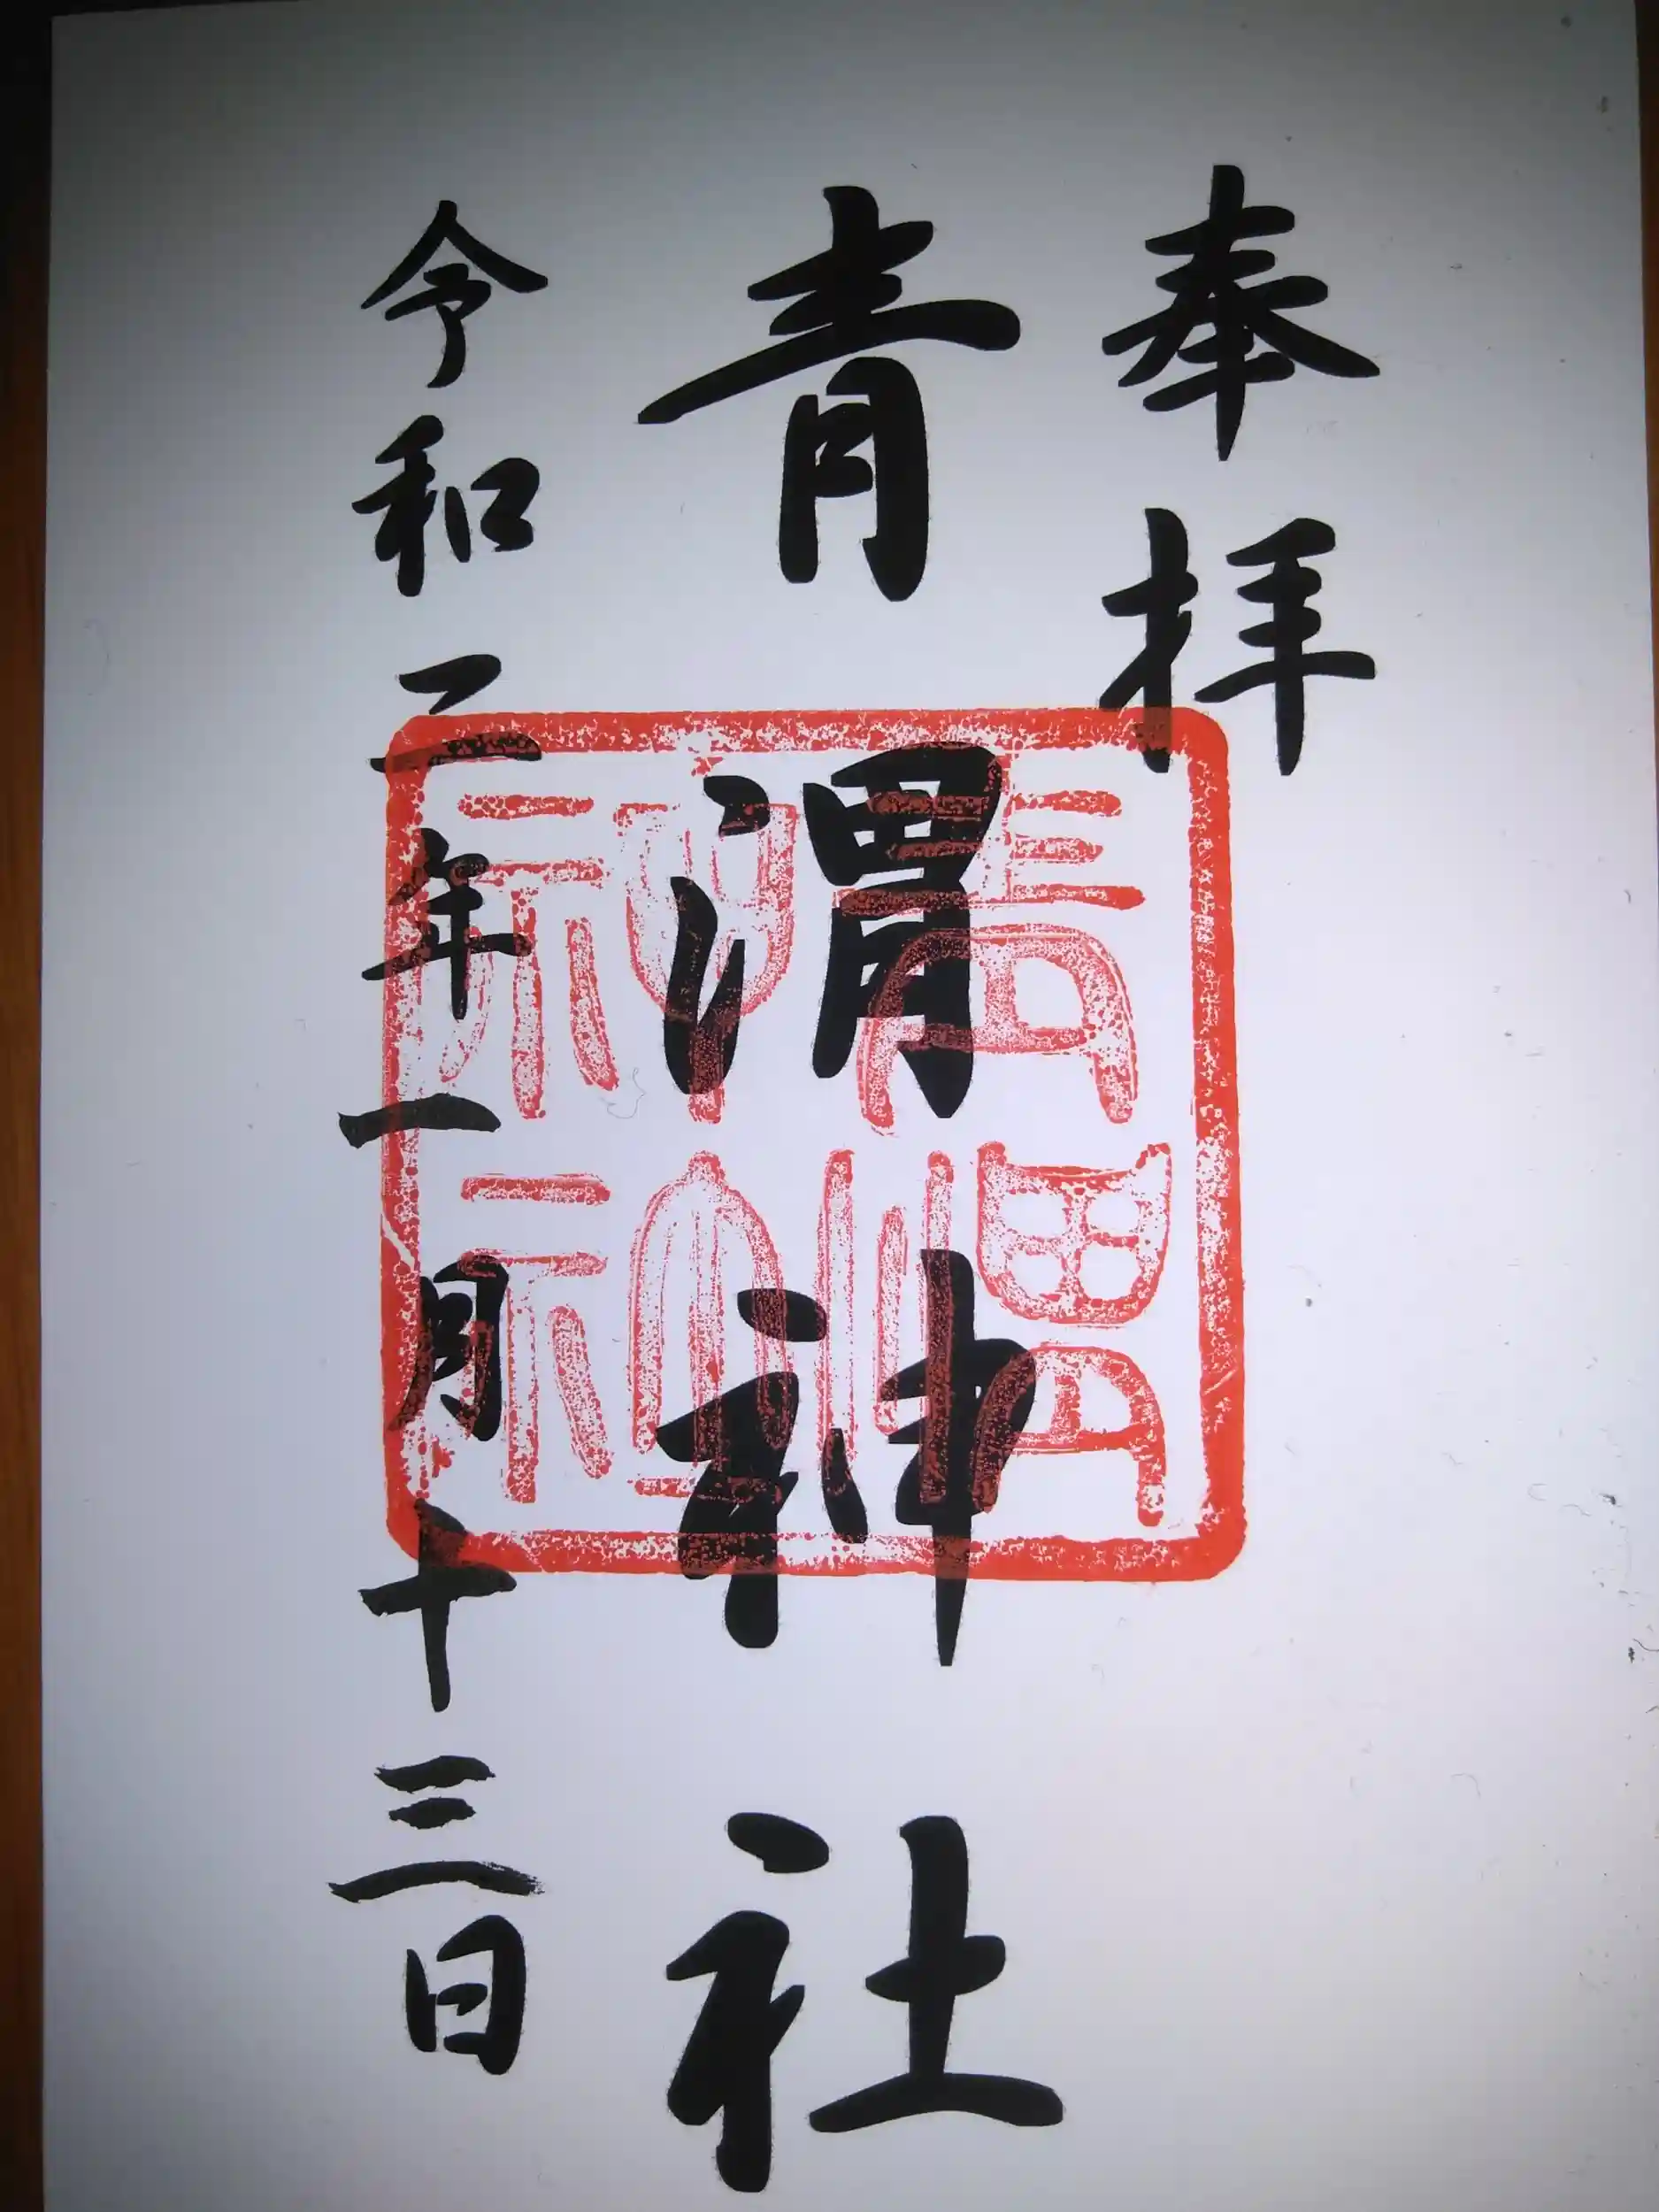 奉拝
青渭神社
令和二年一月十三日
青渭神社